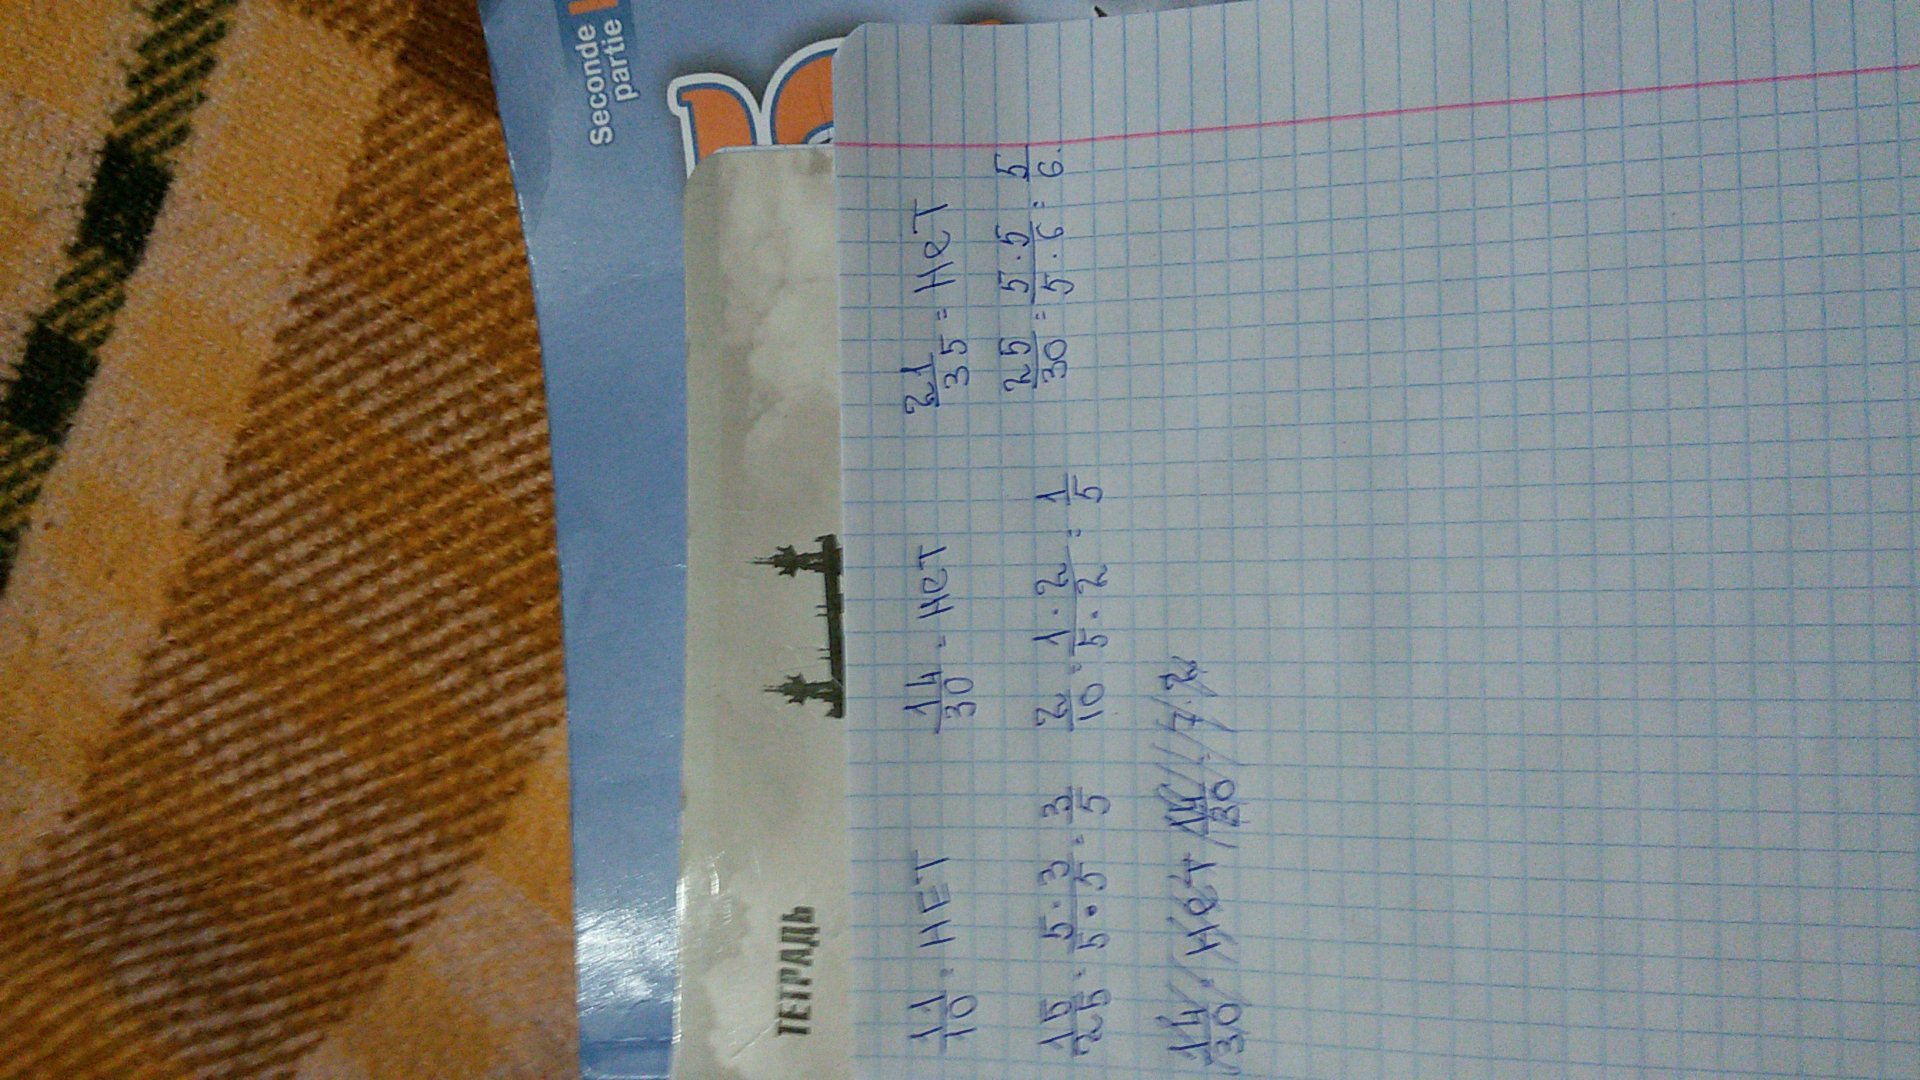 Seconde
partie
ТЕТРАДЬ
11/10 = НЕТ 14/30 = НеТ 21/35 = НеТ
15/25 = 5·3/5·5 = 3/5 2/10 = 1·2/5·2 = 1/5 25/30 = 5·5/5·6 = 5/6.
14/30 = НеТ 14/30